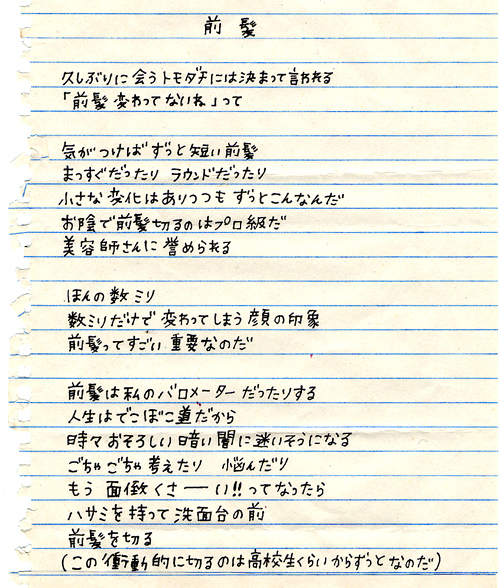 前髪
久しぶりに会うトモダチには決まって言われる
「前髪変わってないね」って
気がつけばずっと短い前髪
まっすぐだったり ラウンドだったり
小さな変化はありつつも ずっとこんなんだ
お陰で前髪切るのはプロ級だ
美容師さんに誉められる
ほんの数ミリ
数ミリだけで変わってしまう顔の印象
前髪ってすごい重要なのだ
前髪は私のバロメーターだったりする
人生はでこぼこ道だから
時々おそろしい暗い闇に迷いそうになる
ごちゃごちゃ考えたり 悩んだり
もう 面倒くさーい!!ってなったら
ハサミを持って洗面台の前
前髪を切る
(この衝動的に切るのは高校生くらいからずっとなのだ)